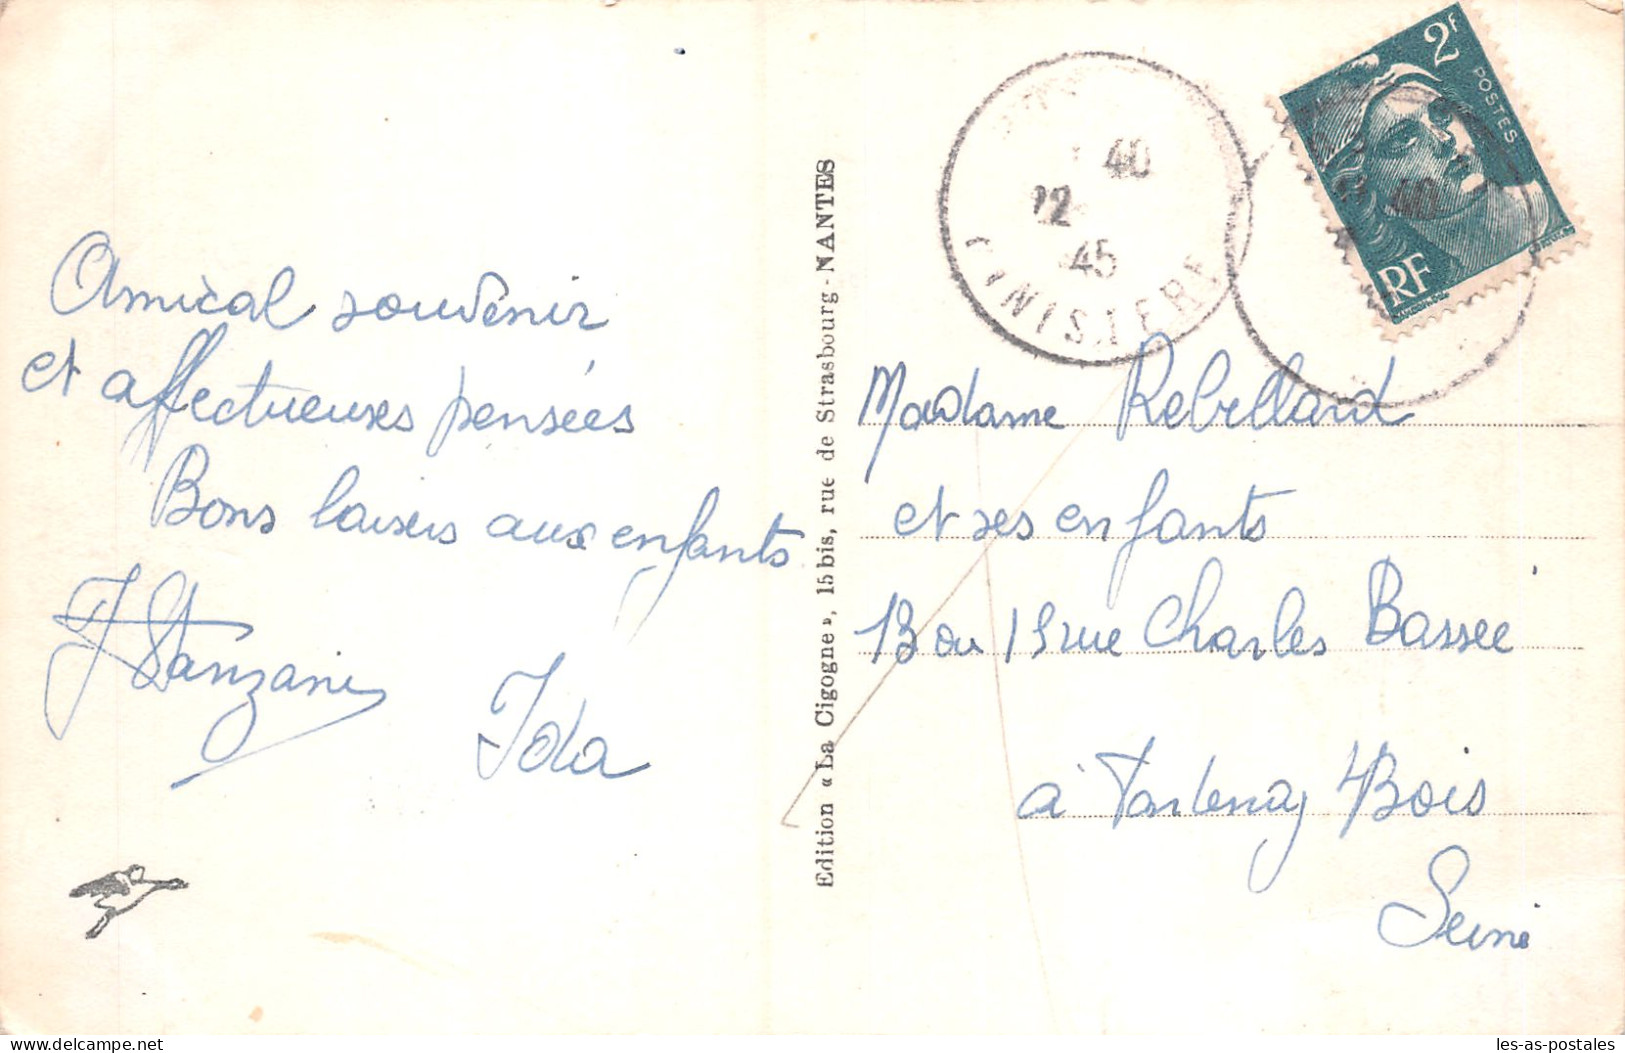 Amical souvenir
et affectueuses pensées
Bons baisers aux enfants
Stanzani
Ida
Edition « La Cigogne », 15 bis, rue de Strasbourg - NANTES
40
12
45
FINISTERE
2F
POSTES
RF
40
Madame Rebillard
et ses enfants
13 ou 15 rue Charles Bassée
à Fontenay s/Bois
Seine
delcampe.net
les-as-postales